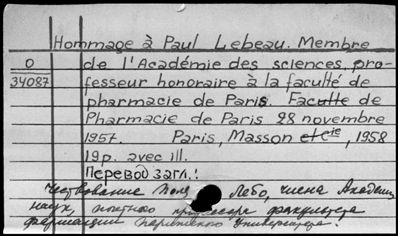 Hommage à Paul Lebeau. Membre
O de l'Académie des sciences, pro-
34087 fesseur honoraire à la faculté de
pharmacie de Paris. Faculte de
Pharmacie de Paris 28 novembre
1957. Paris, Masson et Cie, 1958
19p. avec ill.
Перевод загл.:
Чествование Поля Лебо, члена Академии
наук, почетного профессора факультета
фармации Парижского Университета.